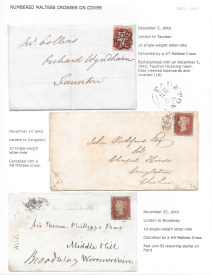 NUMBERED MALTESE CROSSES ON COVER
December 5, 1843
London to Taunton
1d single-weight letter-rate
Cancelled by a #7 Maltese Cross
Backstamped with an December 6, 1843, Taunton receiving mark.
Date inserted backwards and inverted
Taunton
November 14 1843
London to Congleton
1d single-weight letter-rate
Cancelled with a #8 Maltese Cross
John
Esq
Congleton
November 25, 1843
London to Broadway
1d single-weight letter rate
Cancelled by a #8 Maltese Cross
Red receiving stamp on front
Sir Thomas Phillipps Bart
Middle Hill
Broadway Worcestershire